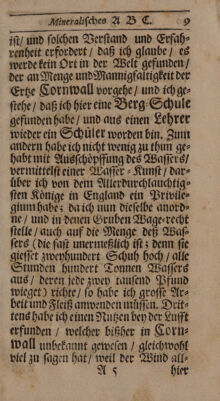 Mineralisches A B C. 9
ist/ und solchen Verstand und Erfah-
renheit erfordert/ daß ich glaube/ es
werde kein Ort in der Welt gefunden/
der an Menge und Mannigfaltigkeit der
Ertze Cornwall vorgehe/ und ich ge-
stehe/ daß ich hier eine Berg-Schule
gefunden habe/ und aus einen Lehrer
wieder ein Schüler worden bin. Zum
andern habe ich nicht wenig zu thun ge-
habt mit Ausschöpffung des Wassers/
vermittelst einer Wasser-Kunst/ dar-
über ich von dem Allerdurchlauchtig-
sten Könige in England ein Privile-
gium habe; da ich nun dieselbe anord-
ne/ und in denen Gruben Wage-recht
stelle/ auch auf die Menge deß Was-
sers (die fast unermeßlich ist; denn sie
giesset zweyhundert Schuh hoch/ alle
Stunden hundert Tonnen Wassers
aus/ deren jede zwey tausend Pfund
wieget) richte/ so habe ich grosse Ar-
beit und Fleiß anwenden müssen. Drit-
tens habe ich einen Nutzen bey der Lufft
erfunden/ welcher bißher in Corn-
wall unbekannt gewesen/ gleichwohl
viel zu sagen hat/ weil der Wind all-
A 5 hier